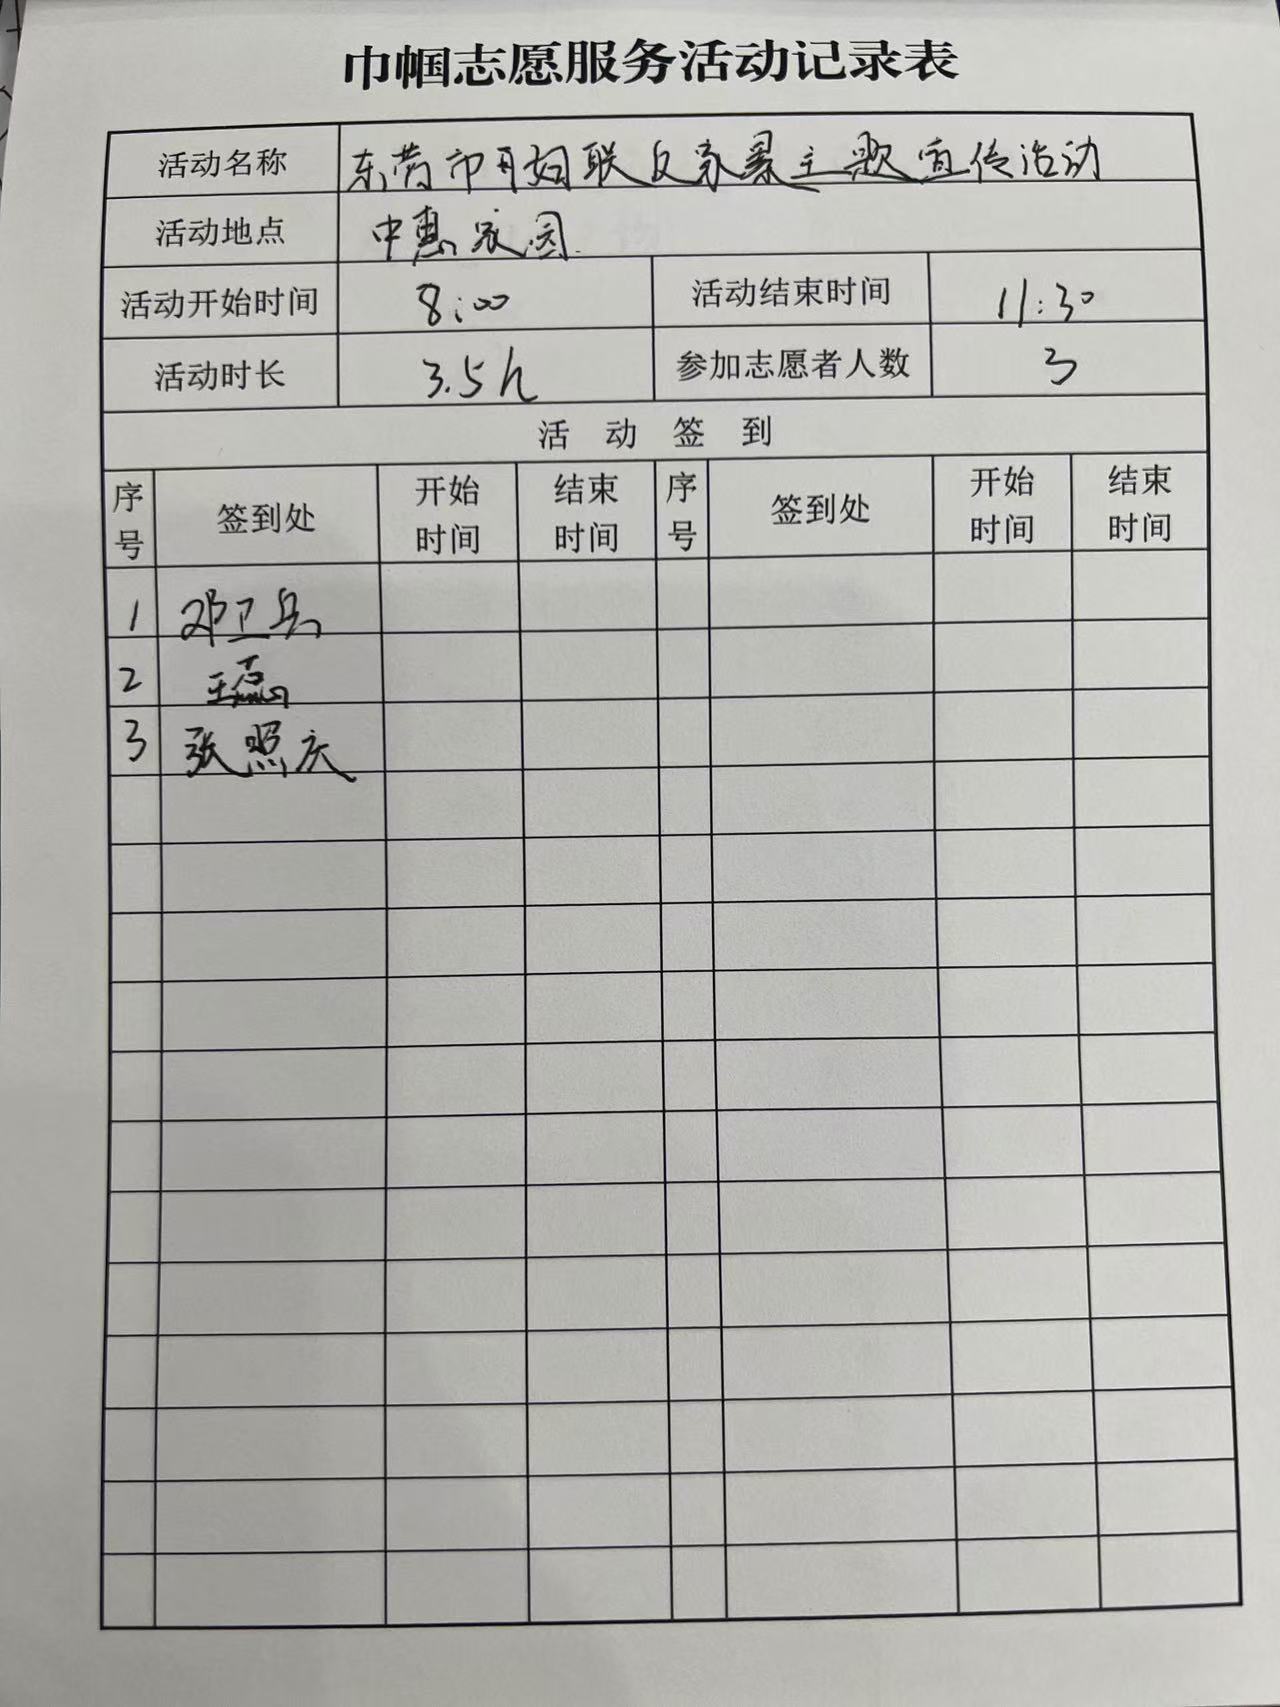 巾帼志愿服务活动记录表
活动名称 东莞市妇联反家暴主题宣传活动
活动地点 中惠家园
活动开始时间 8:00 活动结束时间 11:30
活动时长 3.5h 参加志愿者人数 3
活动签到
序号 签到处 开始时间 结束时间 序号 签到处 开始时间 结束时间
1 邓卫兵
2 王磊
3 张照庆